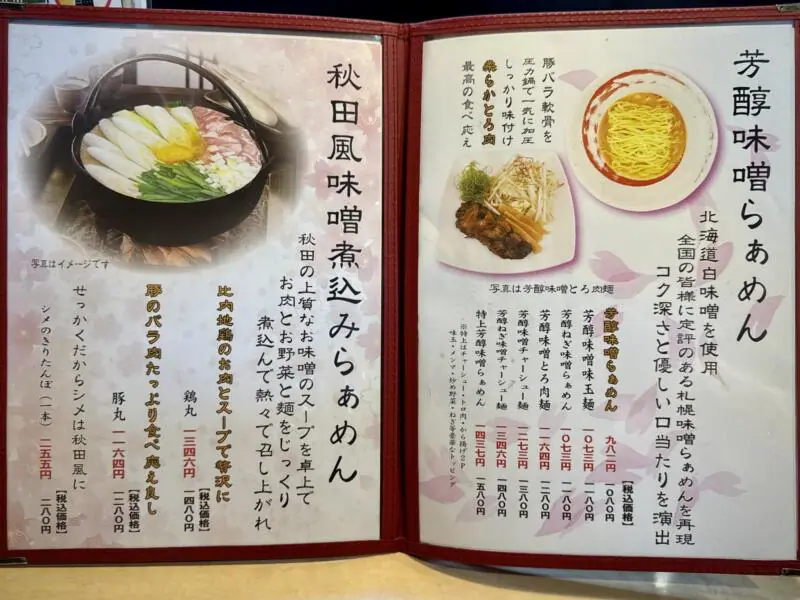 芳醇味噌らぁめん
北海道白味噌を使用
全国の皆様に定評のある札幌味噌らぁめんを再現
コク深さと優しい口当たりを演出
豚バラ軟骨を
圧力鍋で一気に加圧
しっかり味付け
柔らかとろ肉
最高の食べ応え
写真は芳醇味噌とろ肉麺
【税込価格】
芳醇味噌らぁめん 九八二円 一〇八〇円
芳醇味噌味玉麺 一〇七三円 一一八〇円
芳醇ねぎ味噌らぁめん 一〇七三円 一一八〇円
芳醇味噌とろ肉麺 一一六四円 一二八〇円
芳醇味噌チャーシュー麺 一二七三円 一三八〇円
芳醇ねぎ味噌チャーシュー麺 一三四六円 一四八〇円
特上芳醇味噌らぁめん 一四三七円 一五八〇円
※特上はチャーシュー・トロ肉・から揚げ2P
味玉・メンマ・炒め野菜・ねぎ等豪華なトッピング
秋田風味噌煮込みらぁめん
秋田の上質なお味噌のスープを卓上で
お肉とお野菜と麺をじっくり
煮込んで熱々で召し上がれ
写真はイメージです
比内地鶏のお肉とスープで贅沢に
【税込価格】
鶏丸 一三四六円 一四八〇円
豚のバラ肉たっぷり食べ応え良し
【税込価格】
豚丸 一一六四円 一二八〇円
せっかくだからシメは秋田風に
【税込価格】
シメのきりたんぽ(一本) 二五五円 二八〇円